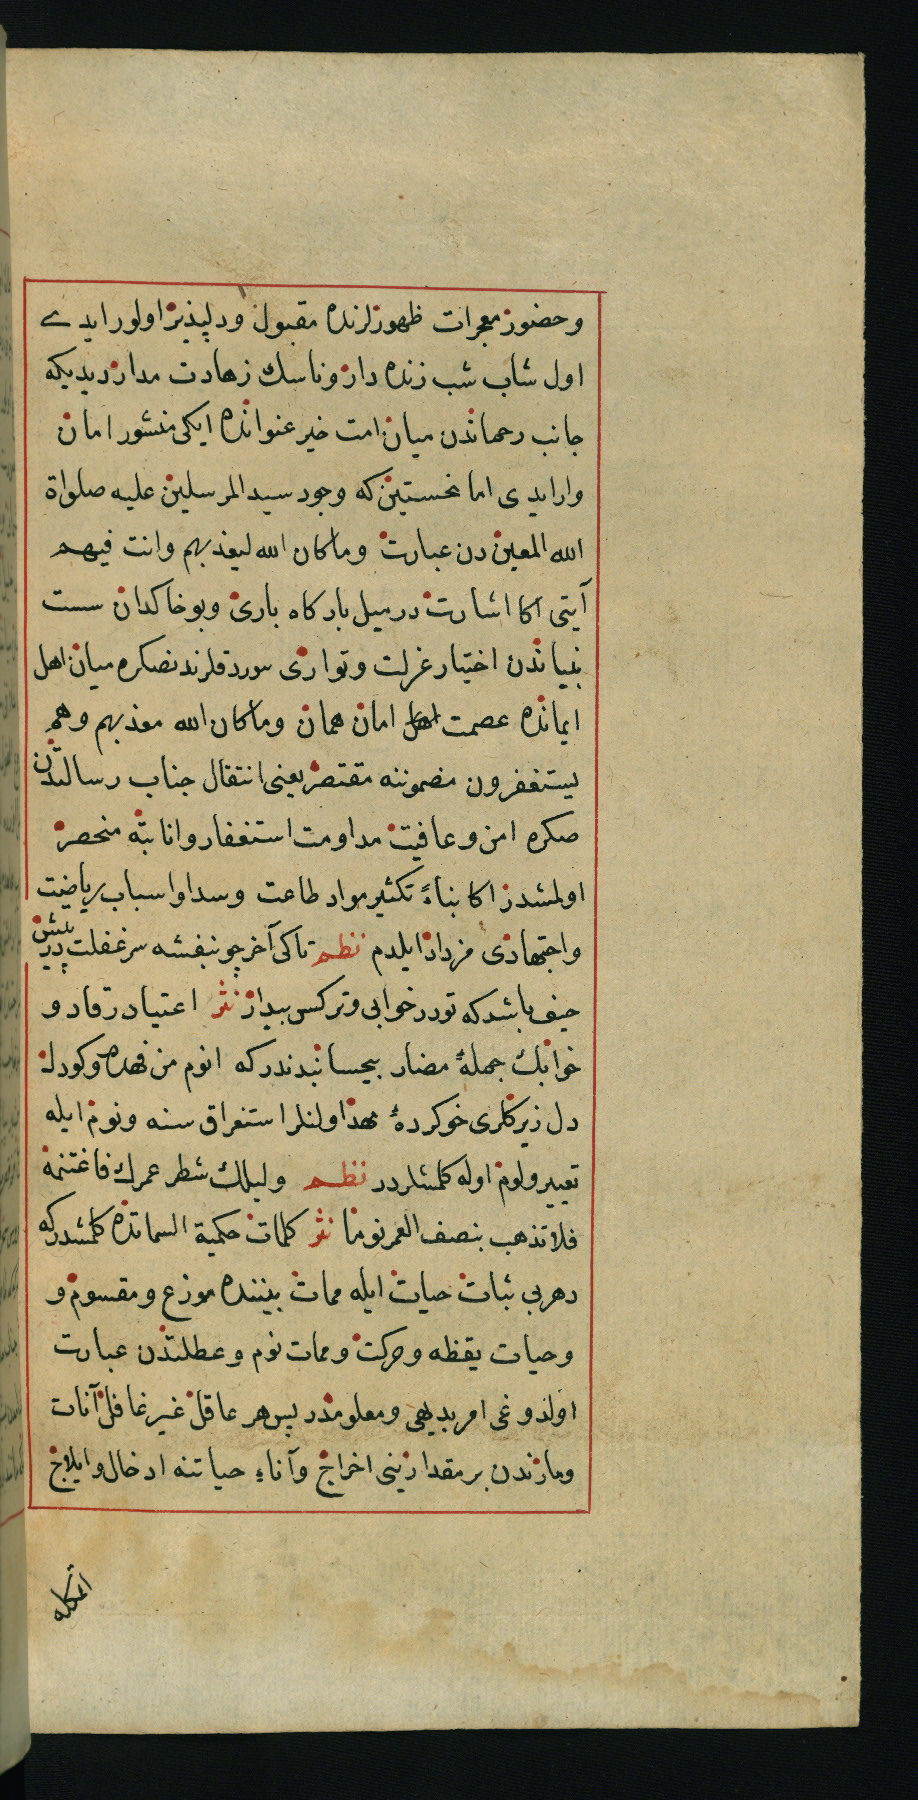 وحضور معجرات ظهورلرنده مقبول ودلپذیر اولور ایدی
اول شاب شب زنده دار وناسك زهادت مدار دیدیکه
جانب رحماندن میان امت خیر عنوانده ایکی منشور امان
وار ایدی اما نخستین که وجود سید المرسلین علیه صلواة
الله المعین دن عبارت وما كان الله لیعذبهم وانت فیهم
آیتی اکا اشارت در میل بارکاه باری وبو خاکدان سست
بنیاندن اختیار عزلت وتواری بیوردقلرندنصکره میان اهل
ایمانده عصمت اهل امان همان وما كان الله معذبهم وهم
یستغفرون مضموننه مقتصر یعنی انتقال جناب رسالتدن
صکره امن وعافیت مداومت استغفار وانابته منحصر
اولمشدر اکا بناءً تکثیر مواد طاعت وسداواسباب ریاضت
واجتهادی مزداد ایلدم نظم تاکی آخر چو بنفشه سر غفلت در پیش
حیف باشد که تو در خوابی ونرکس بیدار نثر اعتیاد رقاد و
خوابك جملهٔ مضار بیحسابندندر که انوم من فهد وکودك
دل زیرکلری خوکردهٔ مهد اولنلر استغراق سنه ونوم ایله
تعییر ولوم اوله کلمشلردر نظم ولیلك شطر عمرك فاغتنمه
فلا تذهب بنصف العمر نوما نثر کلمات حکمیة السماتده کلمشدرکه
دهر بی ثبات حیات ایله ممات بیننده موزع ومقسوم و
وحیات یقظه وحرکت وممات نوم وعطلتدن عبارت
اولدوغی امر بدیهی ومعلومدر پس هر عاقل غیر غافل آنات
ومازندن بر مقدارینی اخراج وآناء حیاتنه ادخال وایلاج